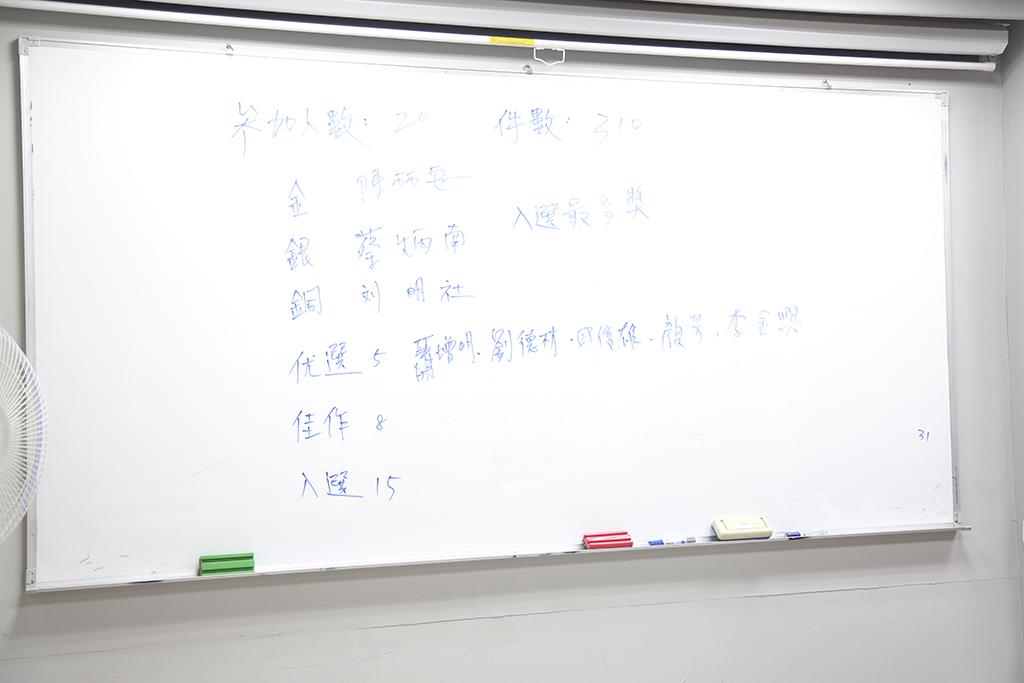 参加人數: 20 件數: 310
金 陳丽安
入選最多獎
銀 蔡炳南
銅 刘明社
优選 5 蕭增明、劉德林、邱俊雄、顏芳、李金興
佳作 8
31
入選 15